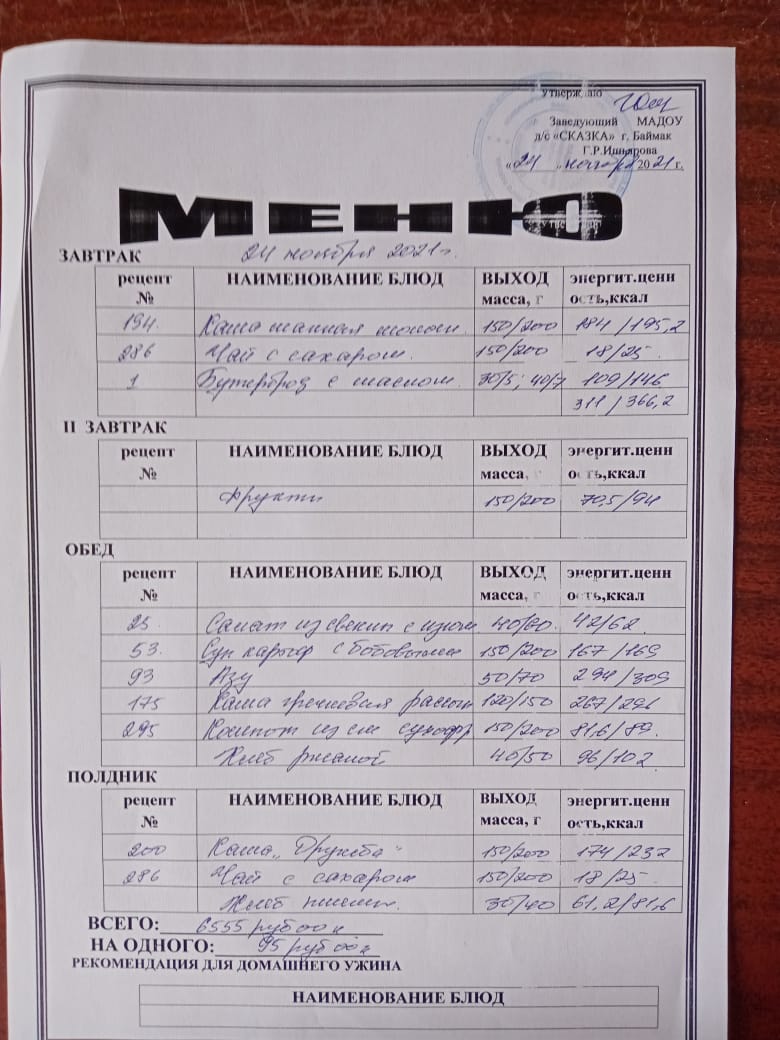 Утверждаю
Заведующий МАДОУ
д/с «СКАЗКА» г. Баймак
Г.Р.Ишьярова
«24 ноября 2021 г.
МЕНЮ
24 ноября 2021 г.
ЗАВТРАК
рецепт № НАИМЕНОВАНИЕ БЛЮД ВЫХОД масса, г энергит.ценность,ккал
194. Каша манная молочн. 150/200 184/195,2
286 Чай с сахаром. 150/200 18/25
1 Бутерброд с маслом. 30/5; 40/7 109/146
311/366,2
II ЗАВТРАК
рецепт № НАИМЕНОВАНИЕ БЛЮД ВЫХОД масса, г энергит.ценность,ккал
Фрукты 150/200 70,5/94
ОБЕД
рецепт № НАИМЕНОВАНИЕ БЛЮД ВЫХОД масса, г энергит.ценность,ккал
25. Салат из свеклы с изюм. 40/60 42/62
53. Суп картоф с бобовыми 150/200 167/169
93 Азу 50/70 294/309
175 Каша гречневая рассып 120/150 267/296
295 Компот из см сухофр 150/200 81,6/89.
Хлеб ржаной 40/50 96/102
ПОЛДНИК
рецепт № НАИМЕНОВАНИЕ БЛЮД ВЫХОД масса, г энергит.ценность,ккал
200 Каша „Дружба" 150/200 174/232
286 Чай с сахаром 150/200 18/25.
Хлеб пшен. 30/40 61,2/81,6
ВСЕГО: 6555 руб 00 к
НА ОДНОГО: 95 руб 00 к
РЕКОМЕНДАЦИЯ ДЛЯ ДОМАШНЕГО УЖИНА
НАИМЕНОВАНИЕ БЛЮД